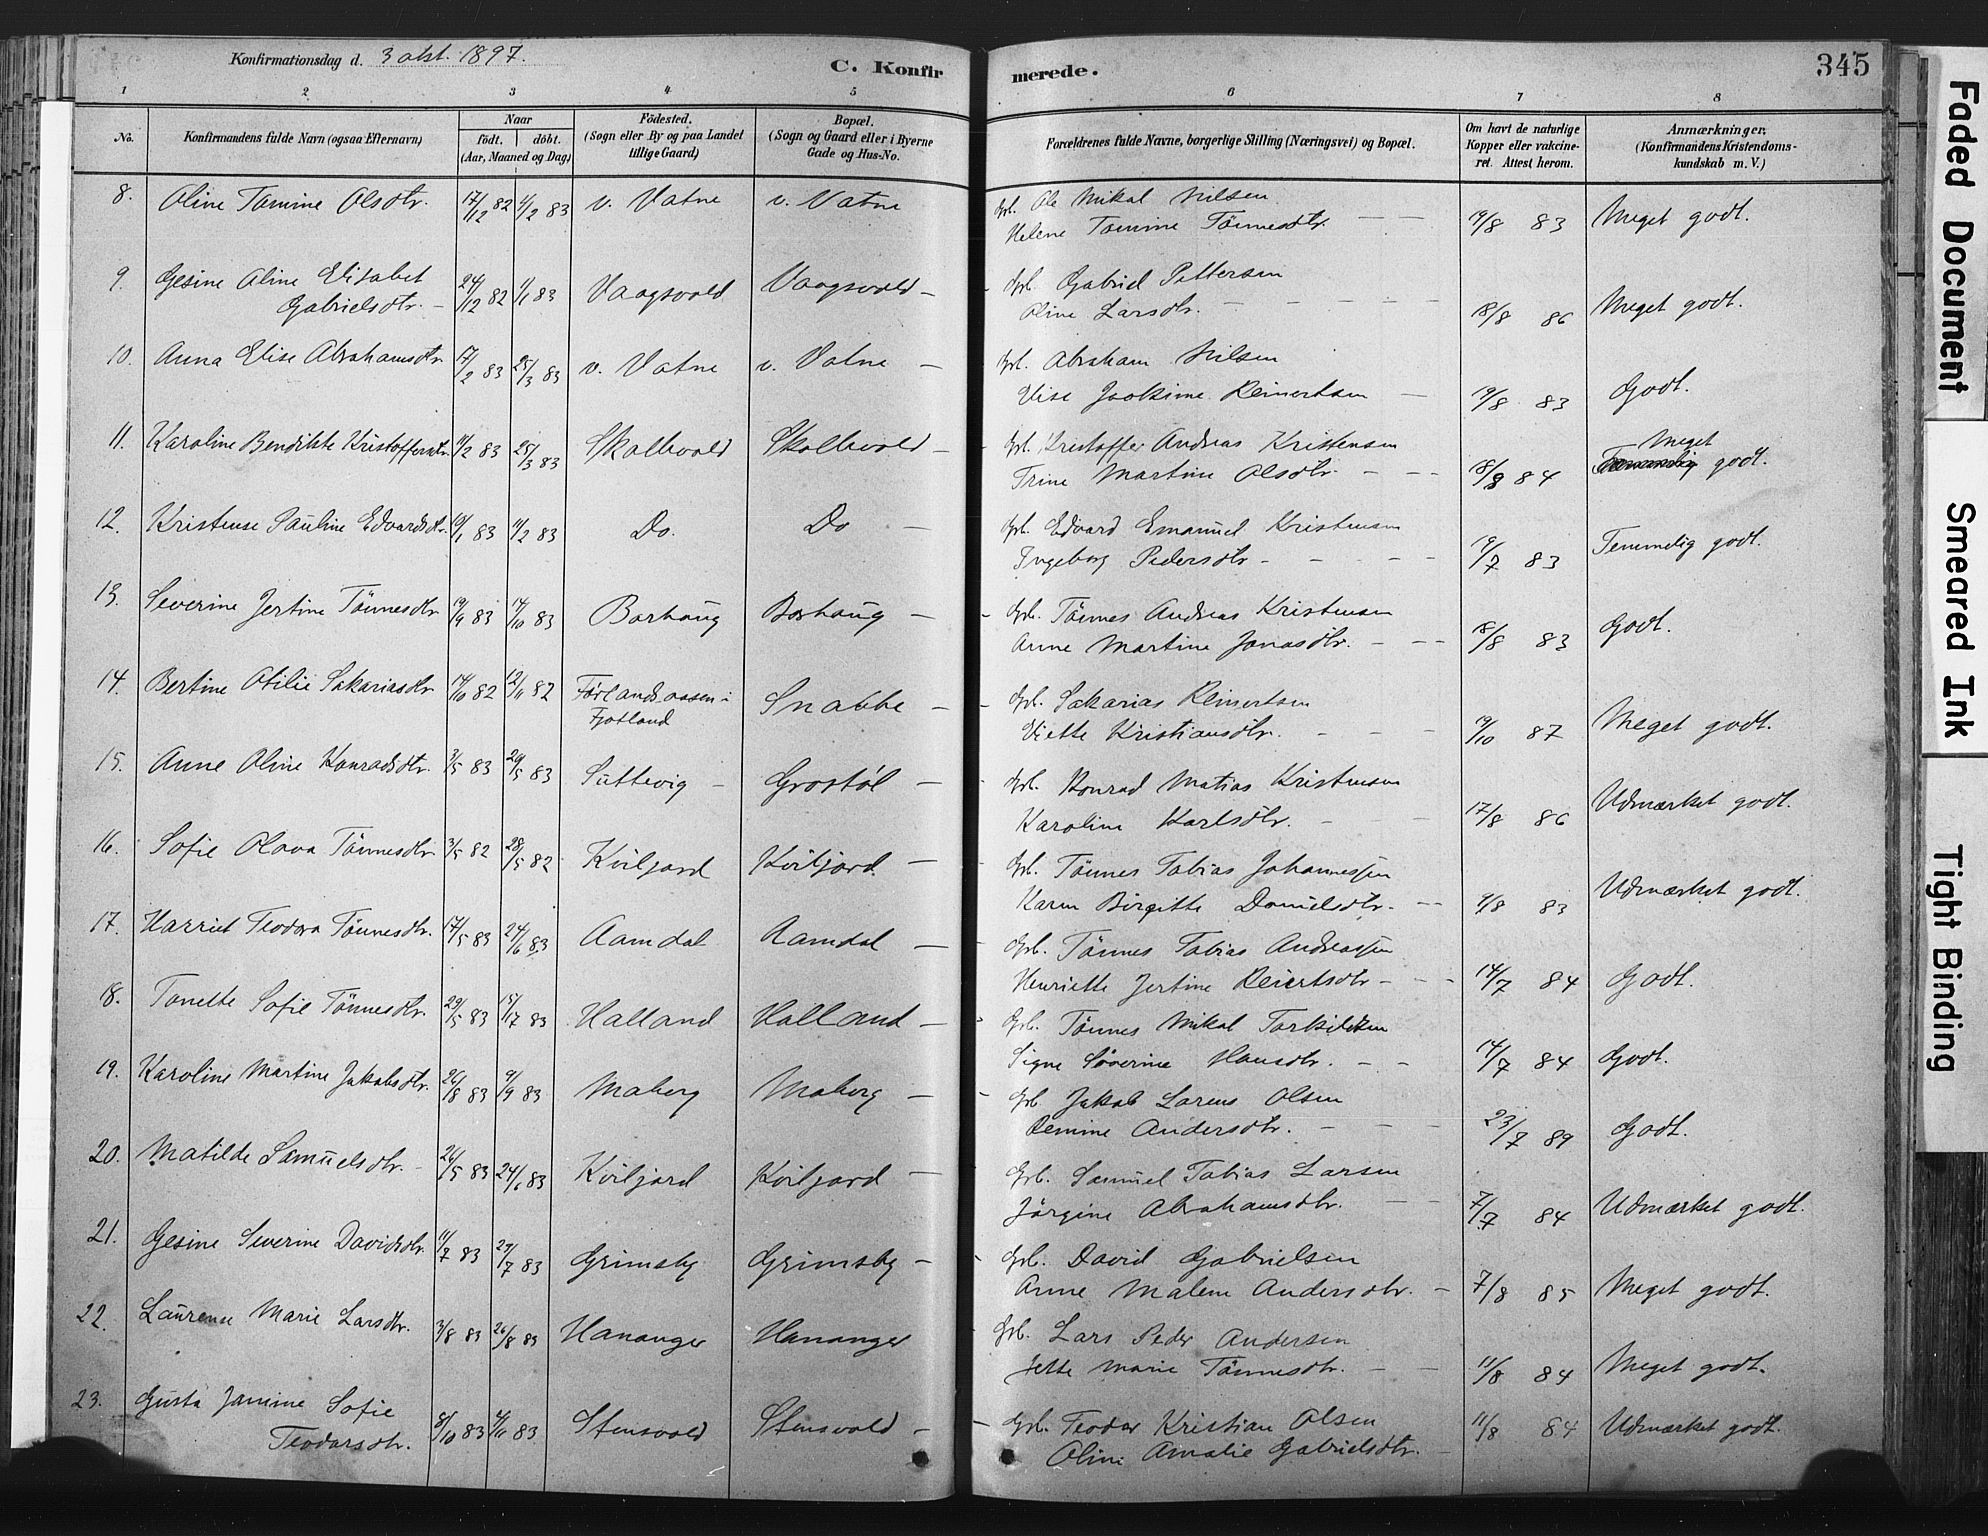 Konfirmationsdag d. 3 okt. 1897.
C. Konfirmerede.
345
1 2 3 4 5 6 7 8
No.
Konfirmandens fulde Navn (ogsaa Efternavn)
Naar
födt. döbt.
(Aar, Maaned og Dag)
Födested.
(Sogn eller By og paa Landet
tillige Gaard)
Bopæl.
(Sogn og Gaard eller i Byerne
Gade og Hus-No.
Forældrenes fulde Navne, borgerlige Stilling (Næringsvei) og Bopæl.
Om havt de naturlige
Kopper eller vakcine-
ret. Attest herom.
Anmærkninger.
(Konfirmandens Kristendoms-
kundskab m. V.)
8. Oline Tomine Olsdtr. 17/12 82 4/2 83 v. Vatne v. Vatne Gbr. Ole Mikal Nilsen
Helene Tomine Tönnesdtr. — — 19/8 83 Meget godt.
9. Gesine Aline Elisabet
Gabrielsdtr. — 24/12 82 1/1 83 Vaagsvold Vaagsvold — Gbr. Gabriel Pettersen
Oline Larsdtr. — — — 18/8 86 Meget godt.
10. Anna Elise Abrahamsdtr. 17/2 83 25/3 83 v. Vatne v. Vatne — Gbr. Abraham Nilsen
Elise Joakime Reinertsen — 19/8 83 Godt.
11. Karoline Bendikte Kristoffersdtr. 11/2 83 25/3 83 Skollevold Skollevold — Gbr. Kristoffer Andreas Kristensen
Trine Martine Olsdtr — — 18/8 84 Meget
godt.
12. Kristense Pauline Edvardsdtr. 10/1 83 11/2 83 Do. Do — Gbr. Edvard Emanuel Kristensen
Ingeborg Pedersdtr — — — 19/7 83 Temmelig godt.
13. Severine Jertine Tönnesdtr. 19/9 83 14/10 83 Borhaug Borhaug — Gbr. Tönnes Andreas Kristensen
Anne Martine Jonasdtr. — — 18/8 83 Godt.
14. Bertine Otilie Sakariasdtr. 14/10 82 12/11 82 Förlandsaasen i
Fjotland Snabbe — Gbr. Sakarias Reinertsen
Viette Kristiansdtr. — — 19/10 87 Meget godt.
15. Anne Oline Konradsdtr. 3/5 83 20/5 83 Suttevig — Grostöl — Gbr. Konrad Matias Kristensen
Karoline Karlsdtr. — — 17/8 86 Udmærket godt.
16. Sofie Olava Tönnesdtr. 3/5 82 28/5 82 Kviljord Kviljord. — Gbr. Tönnes Tobias Johannessen
Karen Birgitte Danielsdtr. — 9/8 83 Udmærket godt.
17. Harriet Teodora Tönnesdtr. 17/5 83 24/6 83 Aamdal Aamdal — Gbr. Tönnes Tobias Andreassen
Henriette Jertine Reiertsdtr — — 14/7 84 Godt.
18. Tonette Sofie Tönnesdtr. 29/5 83 15/7 83 Halland Halland — Gbr. Tönnes Mikal Torkildsen
Signe Söverine Hansdtr. — — 14/7 84 Godt.
19. Karoline Martine Jakobsdtr. 26/8 83 9/9 83 Maberg Maberg — Gbr. Jakob Lorens Olsen
Remine Andersdtr. — — 23/7 89 Godt.
20. Matilde Samuelsdtr. — 26/5 83 24/6 83 Kviljord Kviljord — Gbr. Samuel Tobias Larsen
Jörgine Abrahamsdtr. — — 7/7 84 Udmærket godt.
21. Gesine Severine Davidsdtr. 11/7 83 29/7 83 Grimsby Grimsby — Gbr. David Gabrielsen
Anne Malene Andersdtr. — 7/8 85 Meget godt.
22. Laurense Marie Larsdtr. 3/8 83 26/8 83 Hananger Hananger Gbr. Lars Peder Andersen
Jette Marie Tönnesdtr. — — 11/8 84 Meget godt.
23. Gusta Janine Sofie
Teodorsdtr. 8/10 83 4/11 83 Stensvold Stensvold — Gbr. Teodor Kristian Olsen
Oline Amalie Gabrielsdtr. — 11/8 84 Udmærket godt.
Faded Document
Smeared Ink
Tight Binding